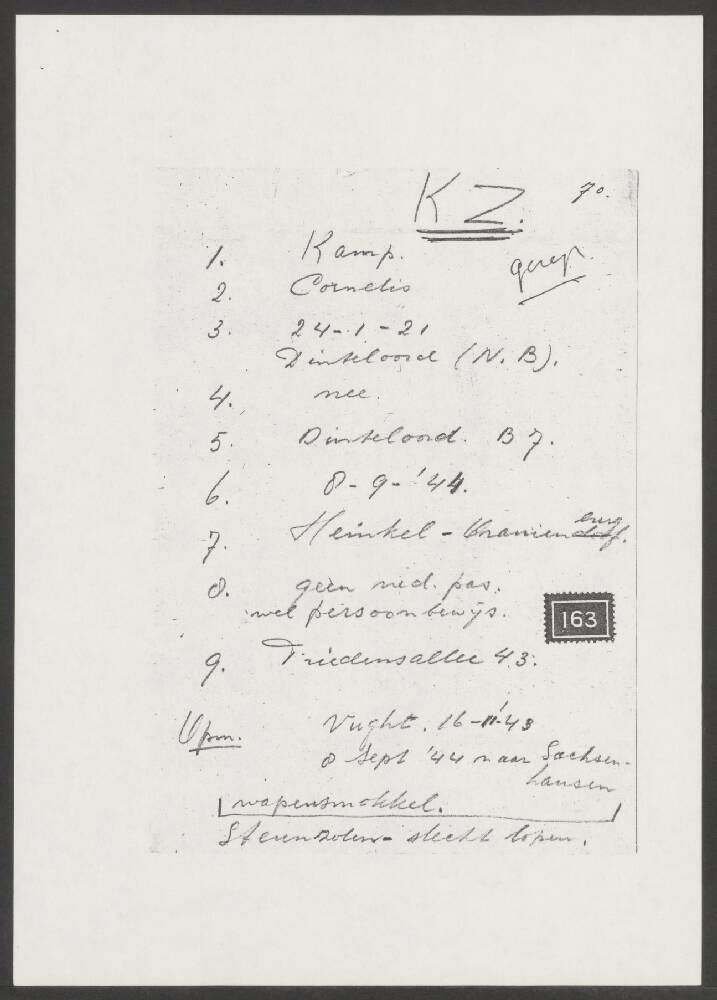 KZ. 70.
1. Kamp.
gerepr.
2. Cornelis
3. 24-1-21
Dinteloord (N.B).
4. nee.
5. Dinteloord. B 7.
6. 8-9-'44.
7. Heinkel - Oranienburg.
8. geen ned. pas.
wel persoonbewijs.
163
9. Friedensallee 43.
Opm. Vught. 16-11-'43
8 Sept '44 naar Sachsen-
hausen
wapensmokkel.
Steunzolen - slecht lopen.